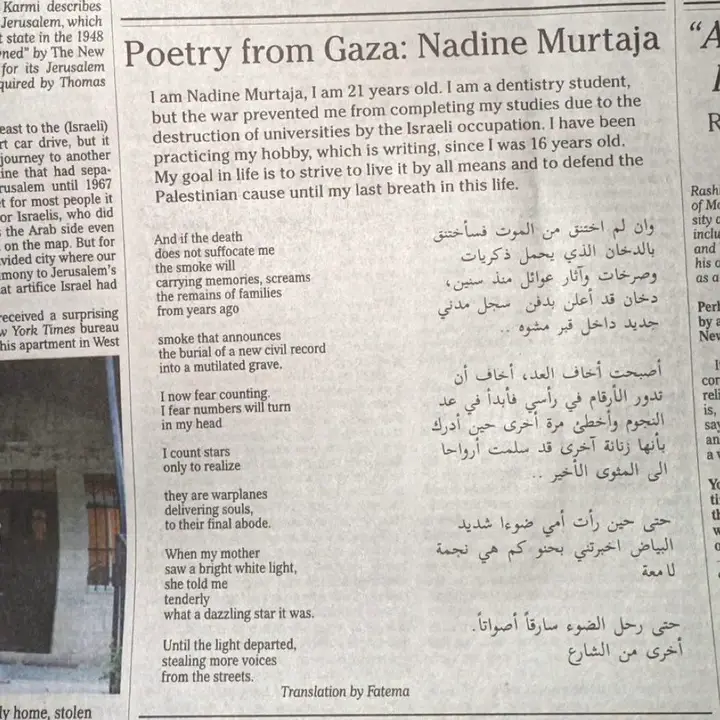 Karmi describes
Jerusalem, which
t state in the 1948
ned" by The New
for its Jerusalem
quired by Thomas
east to the (Israeli)
rt car drive, but it
journey to another
ine that had sepa-
rusalem until 1967
t for most people it
or Israelis, who did
the Arab side even
on the map. But for
vided city where our
mony to Jerusalem's
at artifice Israel had
received a surprising
w York Times bureau
his apartment in West
ly home, stolen
Poetry from Gaza: Nadine Murtaja
I am Nadine Murtaja, I am 21 years old. I am a dentistry student,
but the war prevented me from completing my studies due to the
destruction of universities by the Israeli occupation. I have been
practicing my hobby, which is writing, since I was 16 years old.
My goal in life is to strive to live it by all means and to defend the
Palestinian cause until my last breath in this life.
And if the death
does not suffocate me
the smoke will
carrying memories, screams
the remains of families
from years ago
smoke that announces
the burial of a new civil record
into a mutilated grave.
I now fear counting.
I fear numbers will turn
in my head
I count stars
only to realize
they are warplanes
delivering souls,
to their final abode.
When my mother
saw a bright white light,
she told me
tenderly
what a dazzling star it was.
Until the light departed,
stealing more voices
from the streets.
Translation by Fatema
وان لم اختنق من الموت فسأختنق
بالدخان الذي يحمل ذكريات
وصرخات وآثار عوائل منذ سنين،
دخان قد أعلن بدفن سجل مدني
جديد داخل قبر مشوه ..
أصبحت أخاف العد، أخاف أن
تدور الأرقام في رأسي فأبدأ في عد
النجوم وأخطئ مرة أخرى حين أدرك
بأنها زنانة آخرى قد سلمت أرواحا
الى المثوى الأخير ..
حتى حين رأت أمي ضوءا شديد
البياض اخبرتني بحنو كم هي نجمة
لامعة
حتى رحل الضوء سارقاً أصواتاً.
أخرى من الشارع
"A
R
Rash
of Mo
sity o
inclu
and
his o
as a
Perh
by a
New
I
con
reli
is,
say
an
a w
Yo
ti
th
w
o